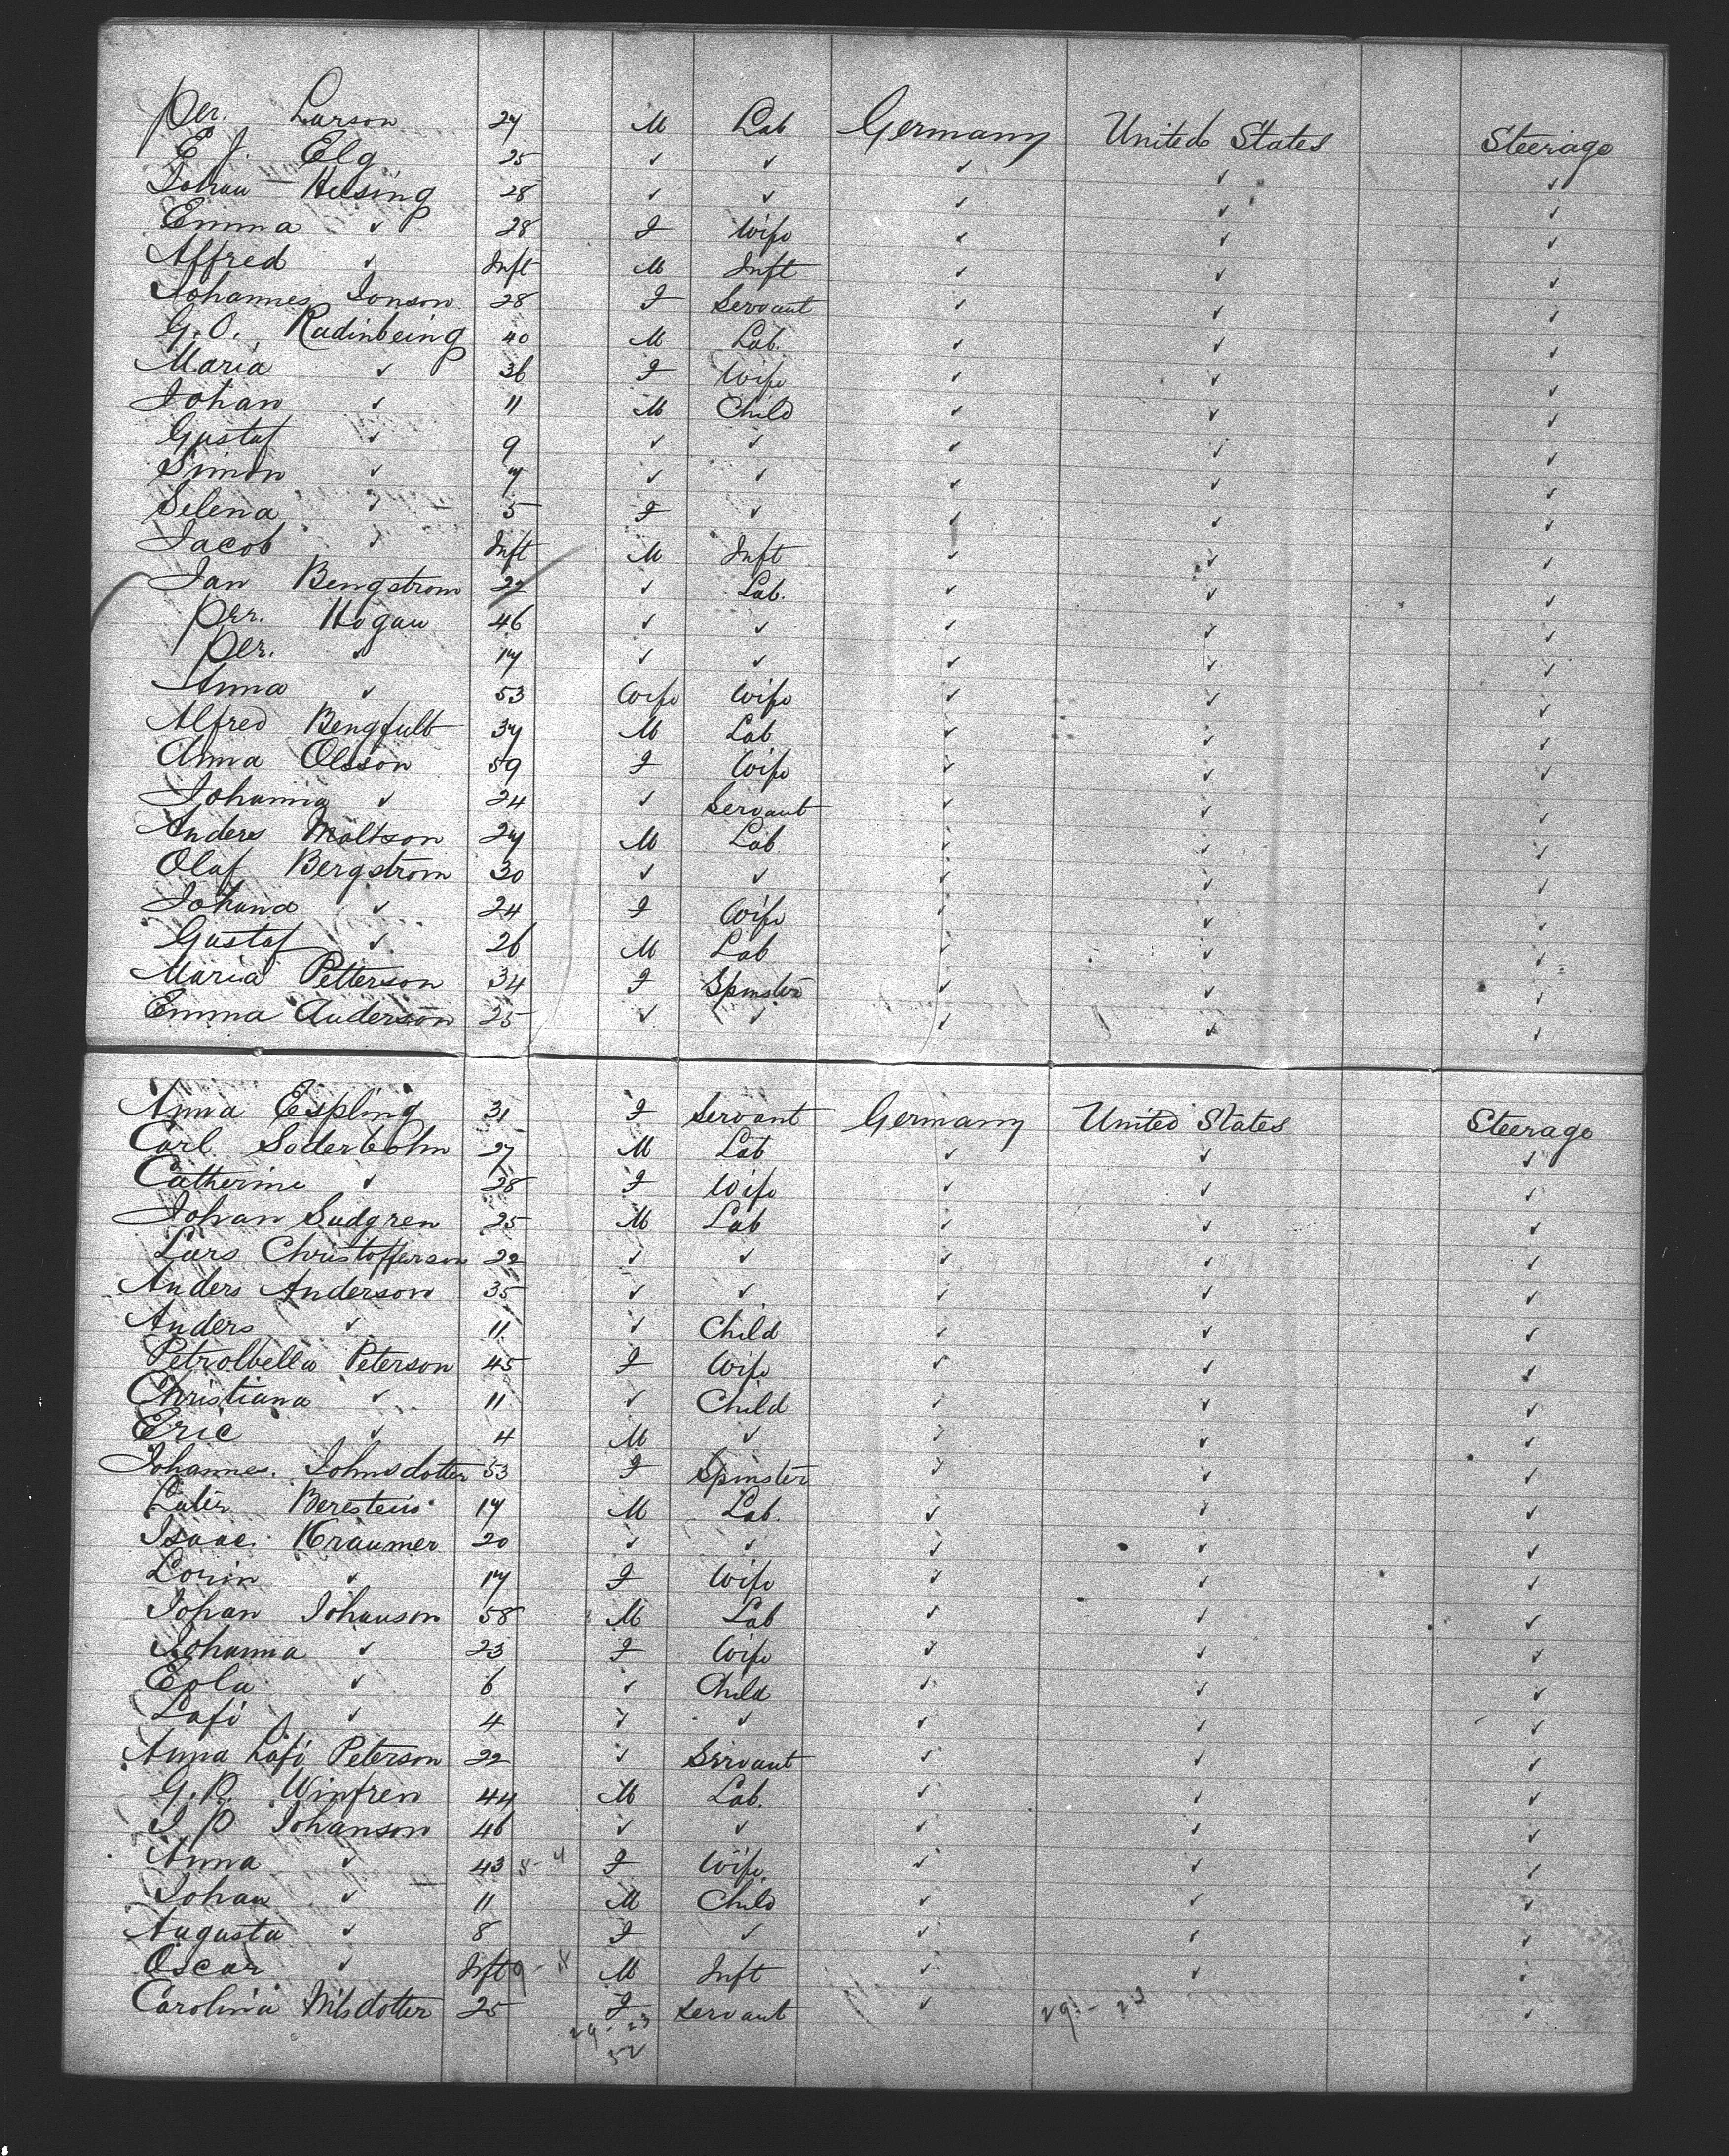 Per. Larson 27 M Lab Germany United States Steerage
E J. Elg 25 ✓ ✓ ✓ ✓ ✓
Johan Helsing 28 ✓ ✓ ✓ ✓ ✓
Emma ✓ 28 F Wife ✓ ✓ ✓
Alfred ✓ Inft M Inft ✓ ✓ ✓
Johannes Jonson 28 F Servant ✓ ✓ ✓
G. O. Radinbeing 40 M Lab. ✓ ✓ ✓
Maria ✓ 36 F Wife ✓ ✓ ✓
Johan ✓ 11 M Child ✓ ✓ ✓
Gustaf ✓ 9 ✓ ✓ ✓ ✓ ✓
Simon ✓ 7 ✓ ✓ ✓ ✓ ✓
Selena ✓ 5 F ✓ ✓ ✓ ✓
Jacob ✓ Inft M Inft ✓ ✓ ✓
Jan Bengstrom 22 ✓ Lab. ✓ ✓ ✓
Per. Hogan 46 ✓ ✓ ✓ ✓ ✓
Per. ✓ 17 ✓ ✓ ✓ ✓ ✓
Anna ✓ 53 Wife Wife ✓ ✓ ✓
Alfred Bengfult 37 M Lab ✓ ✓ ✓
Anna Olsson 59 F Wife ✓ ✓ ✓
Johanna ✓ 24 ✓ Servant ✓ ✓ ✓
Anders Moltson 27 M Lab ✓ ✓ ✓
Olaf Bergstrom 30 ✓ ✓ ✓ ✓ ✓
Johana ✓ 24 F Wife ✓ ✓ ✓
Gustaf ✓ 26 M Lab ✓ ✓ ✓
Maria Petterson 34 F Spinster ✓ ✓ ✓
Emma Anderson 25 ✓ ✓ ✓ ✓ ✓
Anna Espling 31 F Servant Germany United States Steerage
Carl Soderbohm 27 M Lab ✓ ✓ ✓
Catherine ✓ 28 F Wife ✓ ✓ ✓
Johan Sudgren 25 M Lab ✓ ✓ ✓
Lars Christofferson 22 ✓ ✓ ✓ ✓ ✓
Anders Anderson 35 ✓ ✓ ✓ ✓ ✓
Anders ✓ 11 ✓ Child ✓ ✓ ✓
Petrolbella Peterson 45 F Wife ✓ ✓ ✓
Christiana ✓ 11 ✓ Child ✓ ✓ ✓
Eric ✓ 4 M ✓ ✓ ✓ ✓
Johannes. Johnsdotter 53 F Spinster ✓ ✓ ✓
Berestein 17 M Lab. ✓ ✓ ✓
Isaac. Kraumer 20 ✓ ✓ ✓ ✓ ✓
Lorin ✓ 17 F Wife ✓ ✓ ✓
Johan Johanson 58 M Lab ✓ ✓ ✓
Johanna ✓ 23 F Wife ✓ ✓ ✓
Eola ✓ 6 ✓ Child ✓ ✓ ✓
Lafi ✓ 4 ✓ ✓ ✓ ✓ ✓
Anna Lofi Peterson 22 ✓ Servant ✓ ✓ ✓
G. P. Winfren 44 M Lab. ✓ ✓ ✓
J P Johanson 46 ✓ ✓ ✓ ✓ ✓
Anna ✓ 43 5-4 F Wife ✓ ✓ ✓
Johan ✓ 11 M Child ✓ ✓ ✓
Augusta ✓ 8 F ✓ ✓ ✓ ✓
Oscar ✓ Inft M Inft ✓ ✓ ✓
Carolina Nilsdotter 25 F Servant ✓ 29-23 ✓
29-23
52